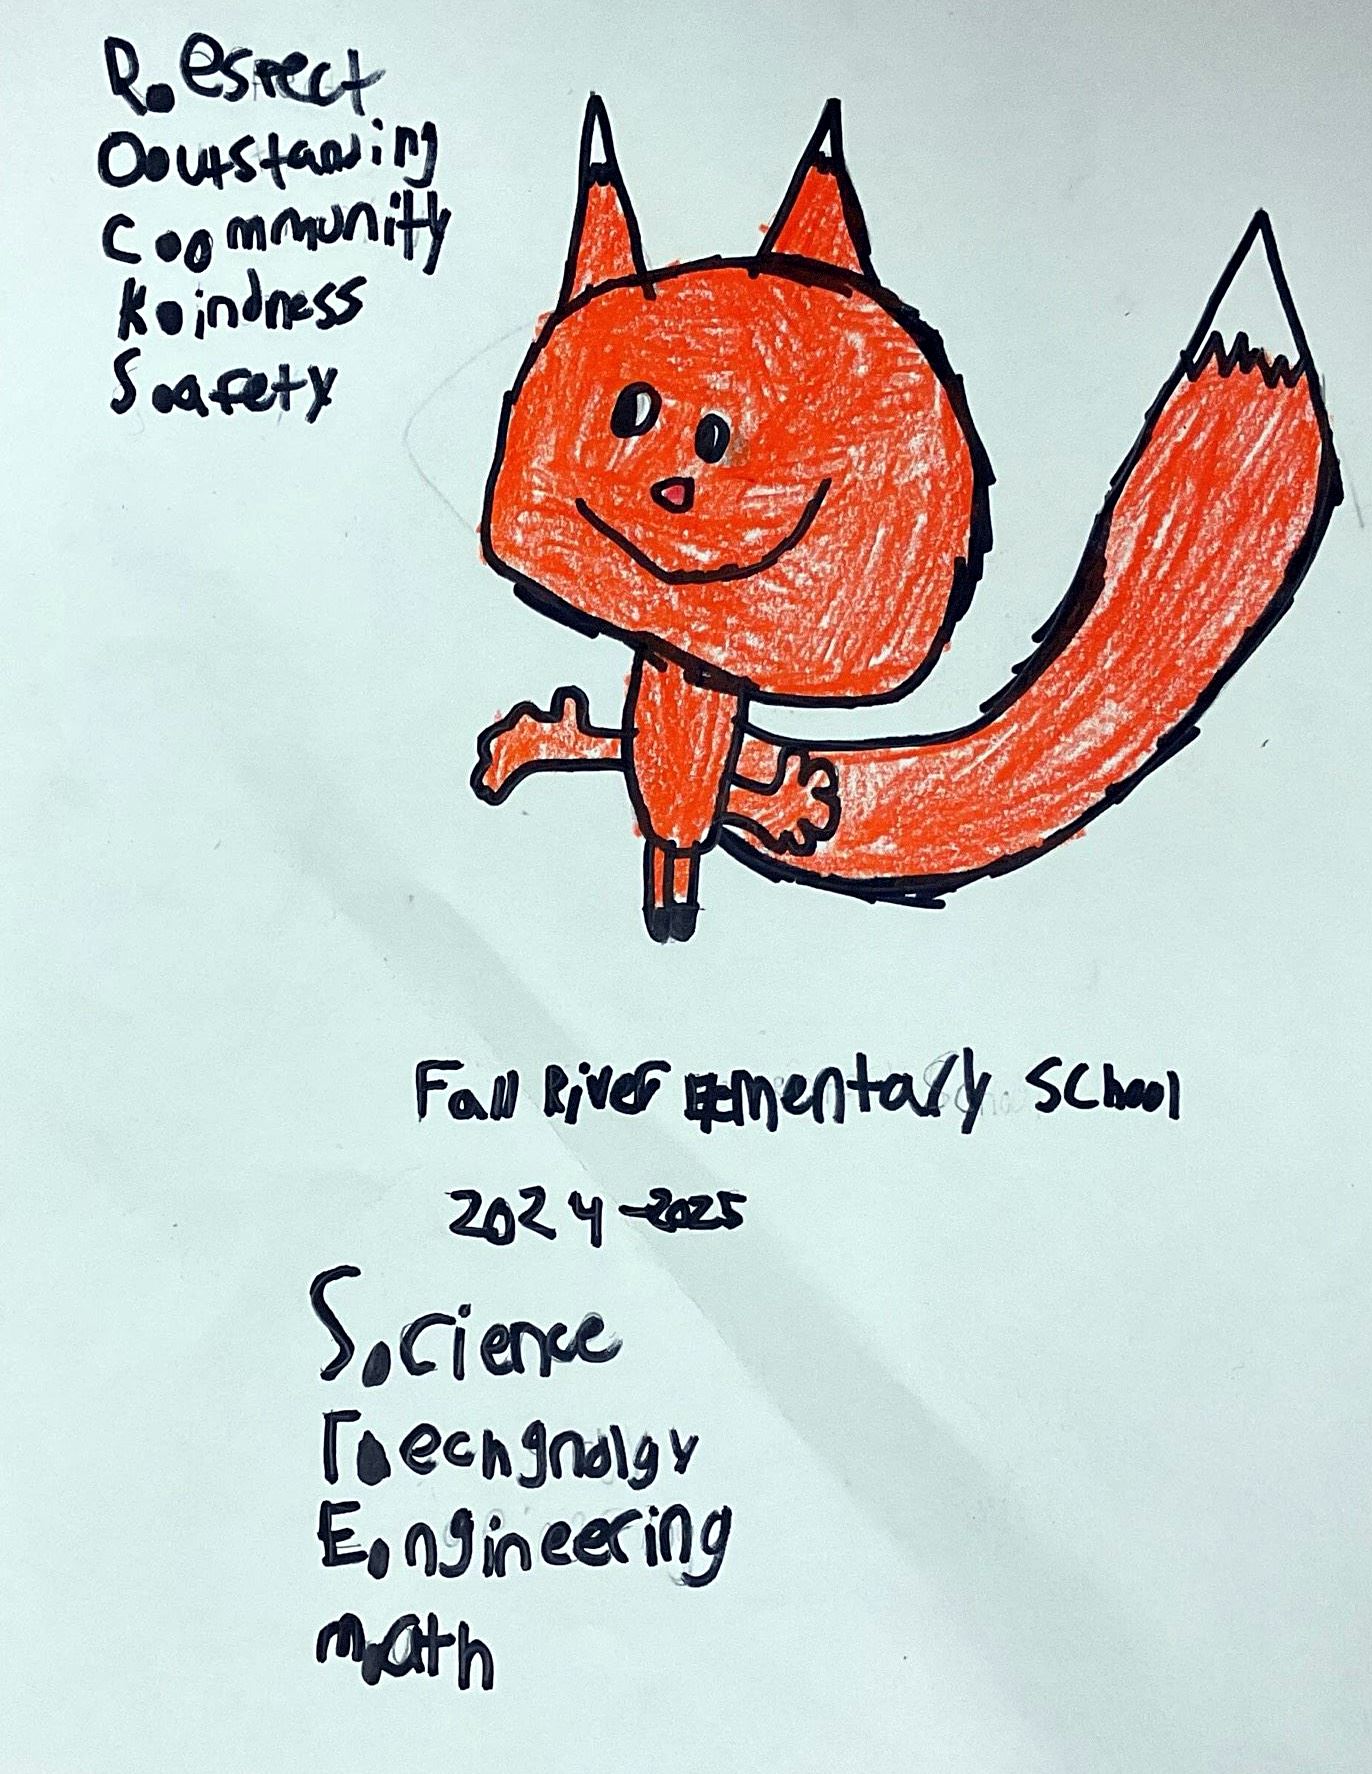 R.espect
O.utstanding
C.ommunity
K.indness
S.afety
Fall River Elementary School
2024-2025
S.cience
T.echgnolgy
E.ngineering
m.ath